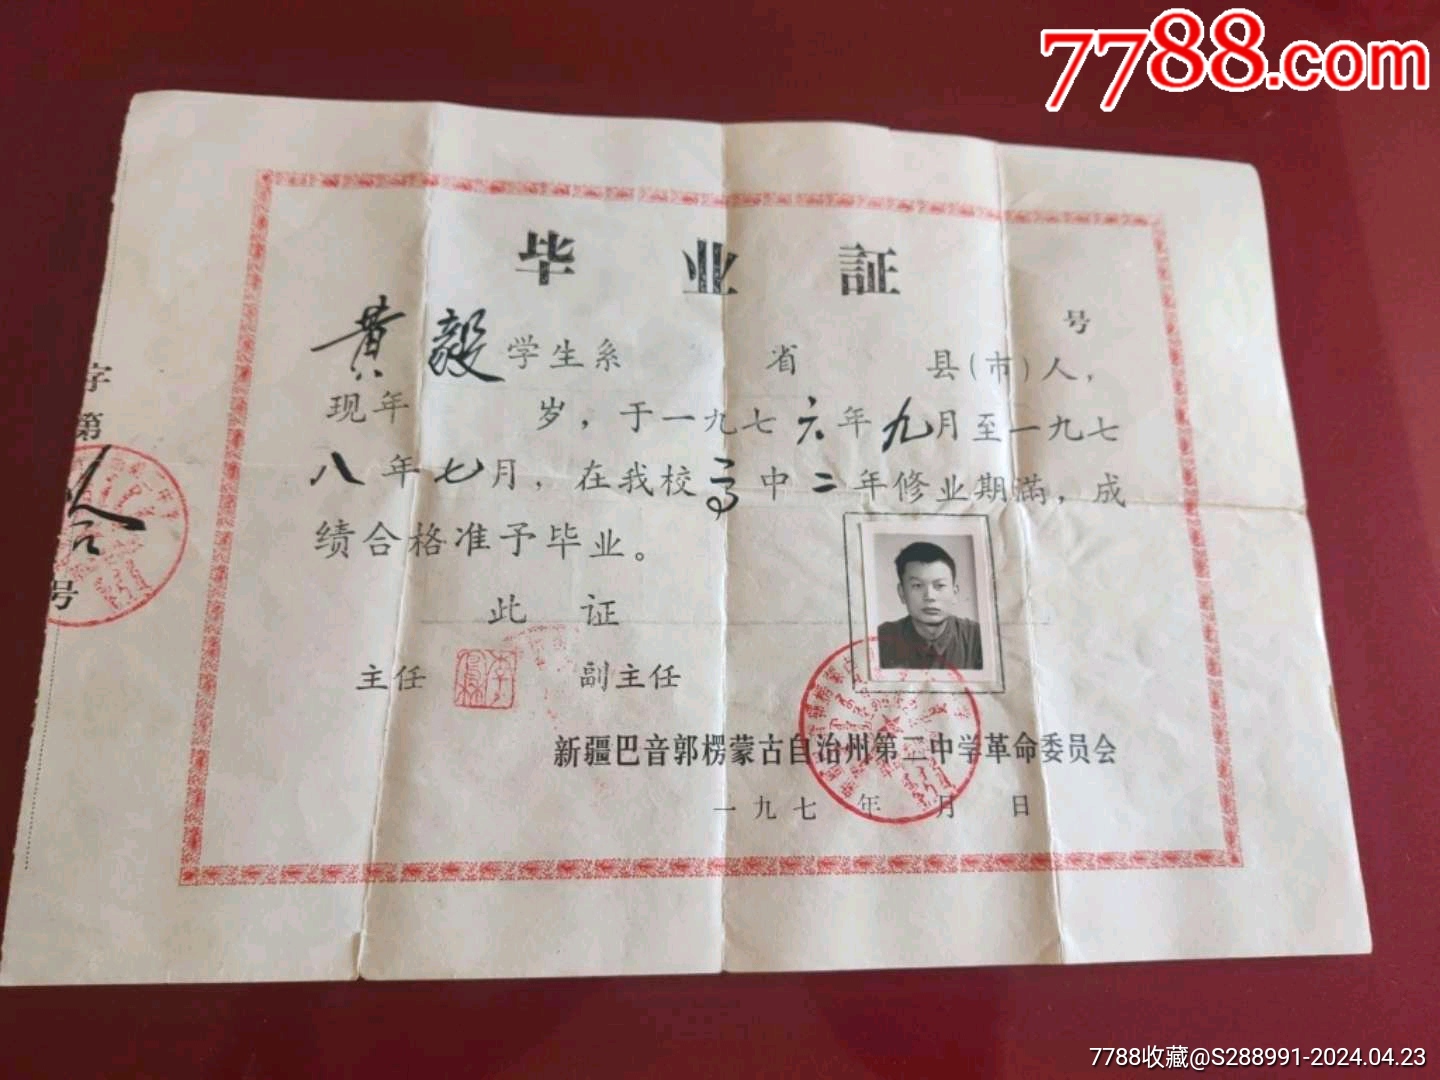 7788.com
毕业証
号
黄毅学生系 省 县(市)人，
现年 岁，于一九七六年九月至一九七
八年七月，在我校高中二年修业期满，成
绩合格准予毕业。
此证
主任 副主任
新疆巴音郭楞蒙古自治州第二中学革命委员会
一九七 年 月 日
字
第
号
7788收藏@S288991-2024.04.23